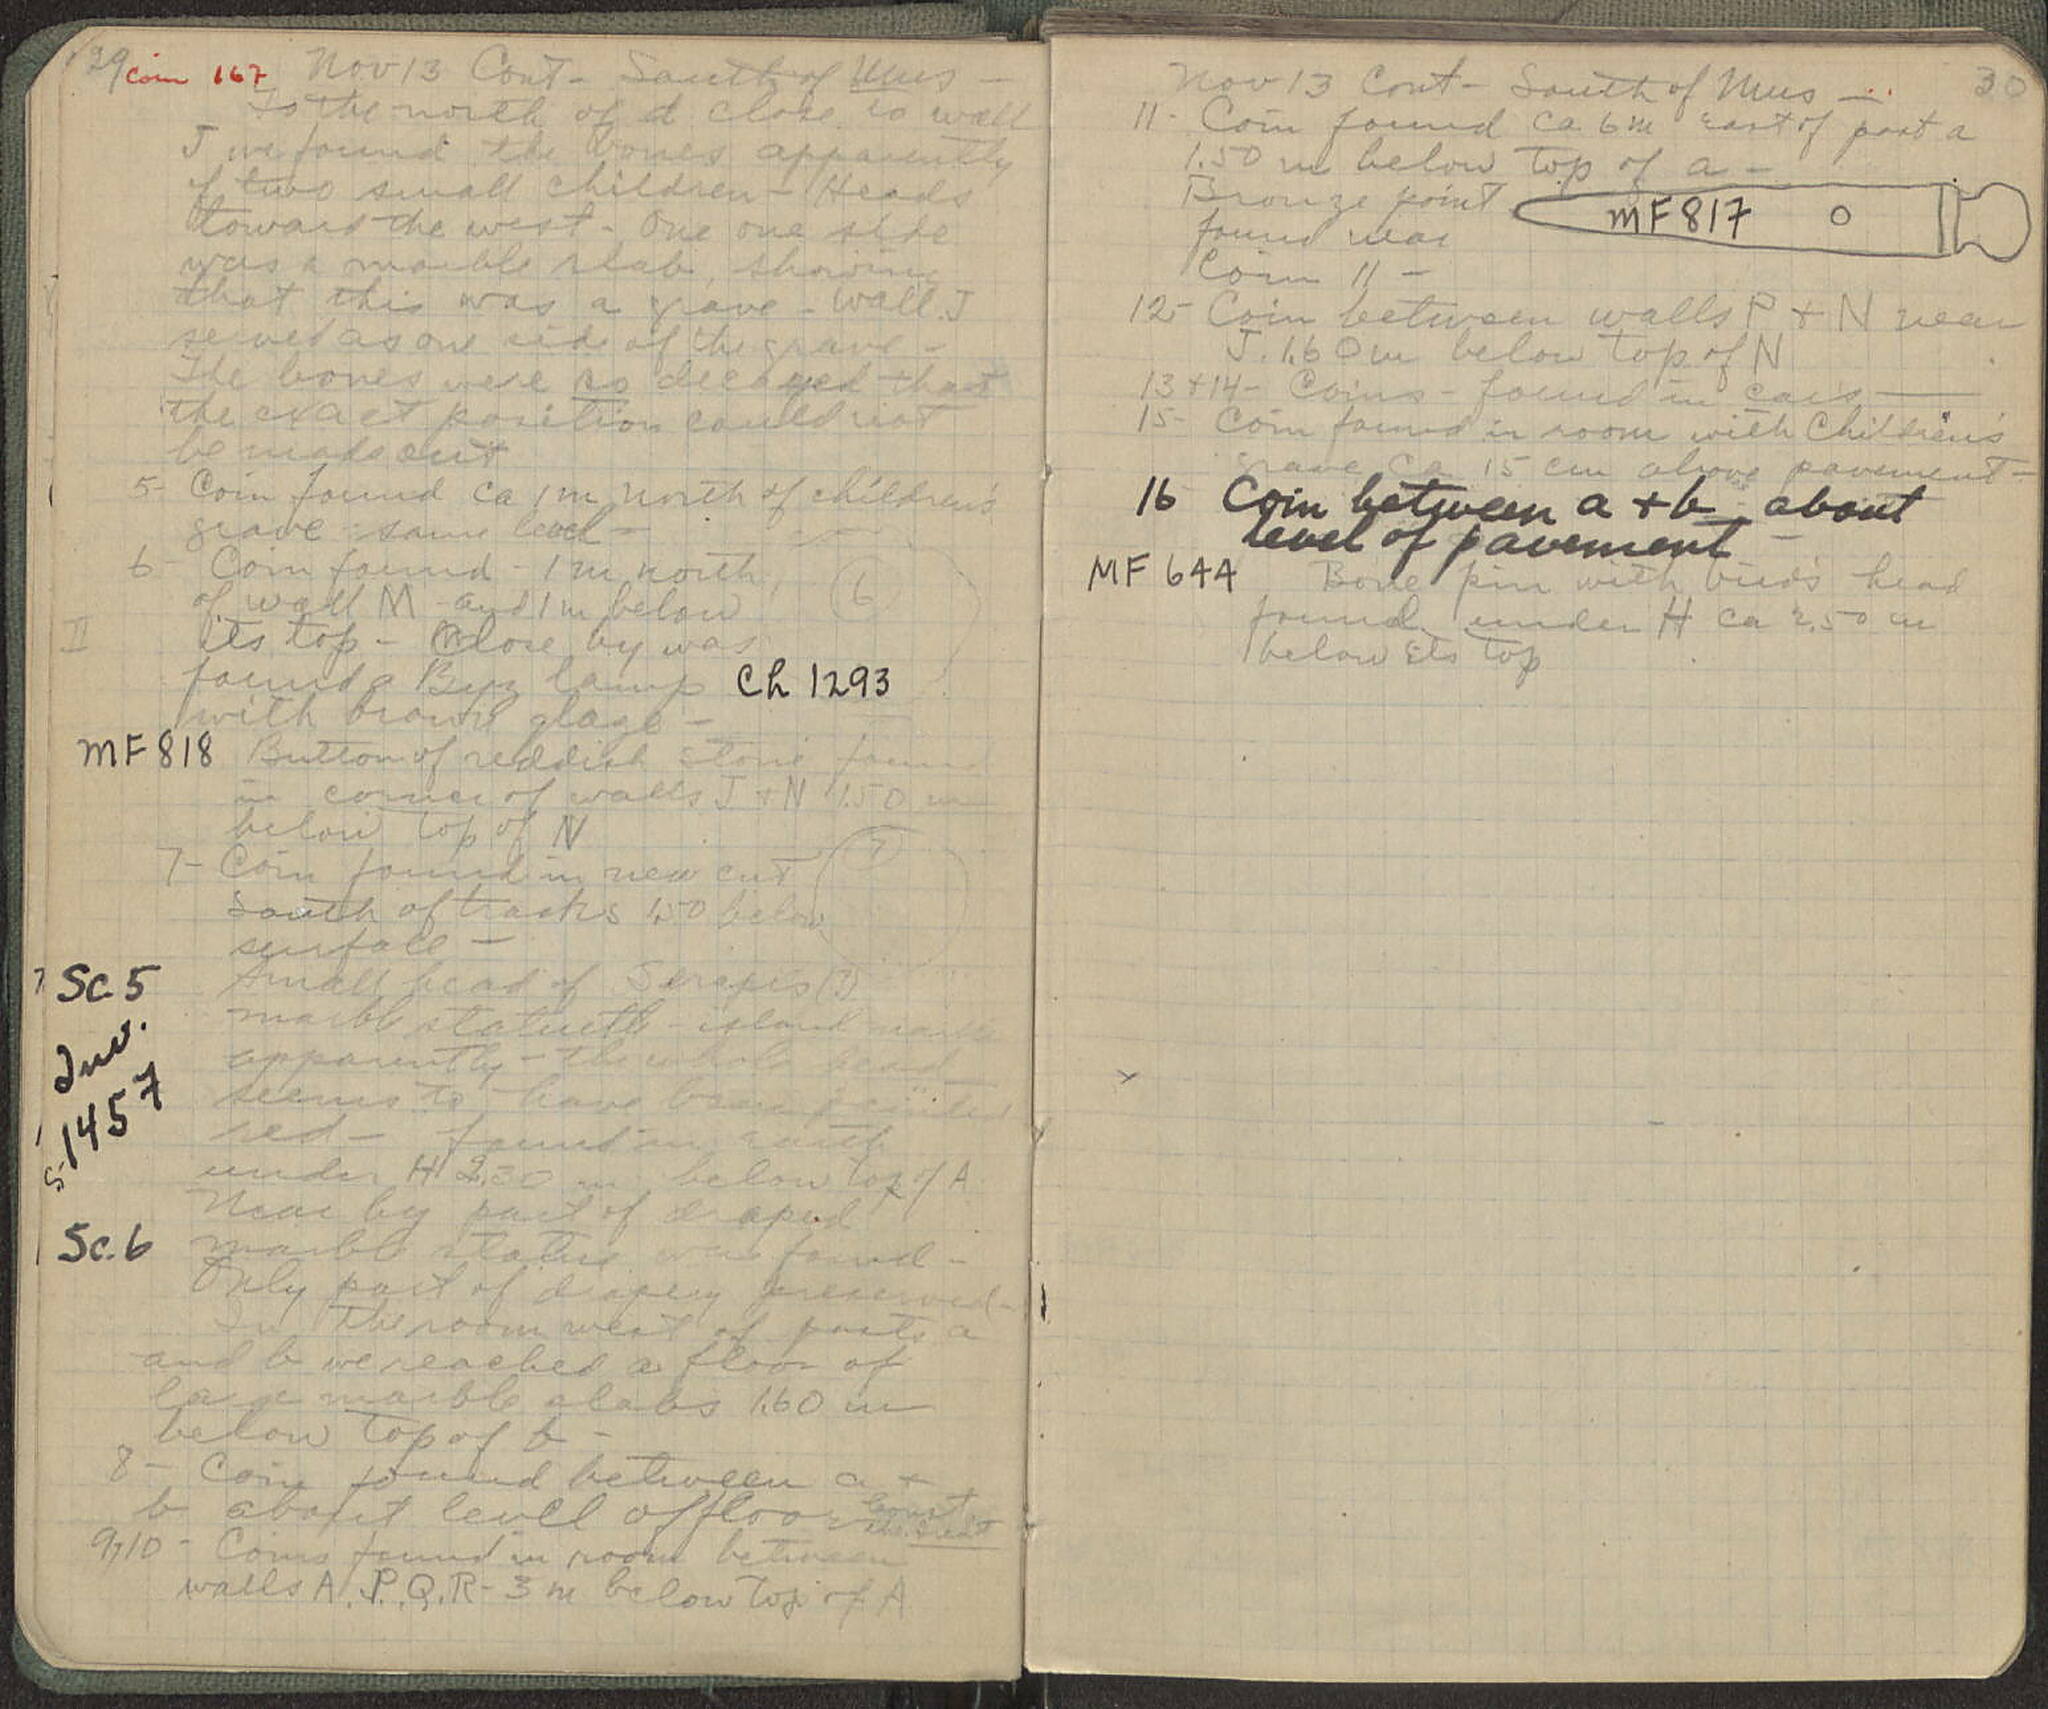 29 Coin 167 Nov 13 Cont - South of Mus -
To the north of d close to wall
J we found the bones apparently
of two small children - Heads
toward the west - One one side
was a marble slab, showing
that this was a grave - Wall J
served as one side of the grave -
The bones were so decayed that
the exact position could not
be made out
5- Coin found ca 1 m north of children's
grave - same level -
6- Coin found - 1 m north 6
of wall M and 1 m below
II its top - Close by was
found a Byz lamp Ch 1293
with brown glaze -
MF 818 Button of reddish stone found
in corner of walls J + N 1.50 m
below top of N
7- Coin found in new cut 7
South of tracks 1.50 below
surface -
Sc. 5 Small head of Serapis (?)
marble statuette - island marble
Inv. apparently - the whole head
1457 seems to have been painted
red - found in earth
S- under H 2.30 m below top of A
Near by part of draped
Sc. 6 marble statue was found -
Only part of drapery preserved -
In the room west of posts a
and b we reached a floor of
large marble slabs 1.60 m
below top of b -
8- Coin found between a +
b about level of floor
9, 10 - Coins found in room between
walls A. P. Q. R - 3 m below top of A
Nov 13 Cont - South of Mus - 30
11- Coin found ca 6 m east of post a
1.50 m below top of a -
Bronze point MF 817
found near
Coin 11 -
12- Coin between walls P + N near
J. 1.60 m below top of N
13 + 14 - Coins - found in cars
15- Coin found in room with Children's
grave ca 15 cm above pavement -
16 Coin between a + b about
level of pavement -
MF 644 Bone pin with bird's head
found under H ca 2.50 m
below its top